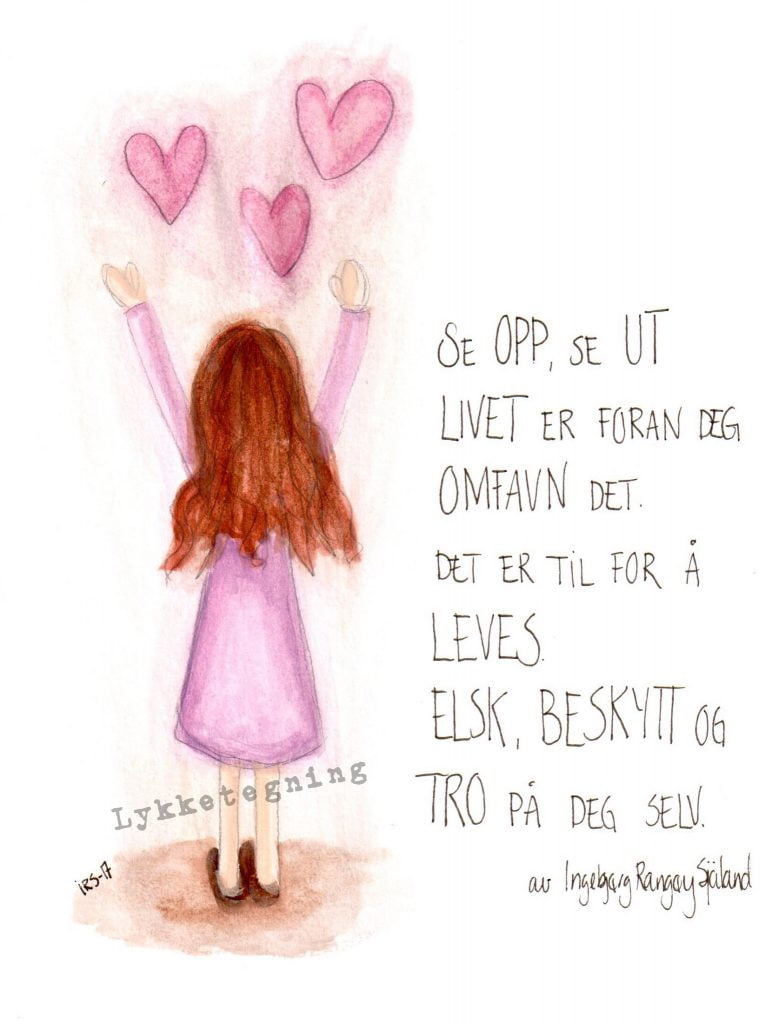 Se OPP, SE UT
LIVET ER FORAN DEG
OMFAVN DET.
DET ER TIL FOR Å
LEVES.
ELSK, BESKYTT OG
TRO PÅ DEG SELV.
av Ingebjørg Rangøy Sjåland
Lykketegning
iRS-17